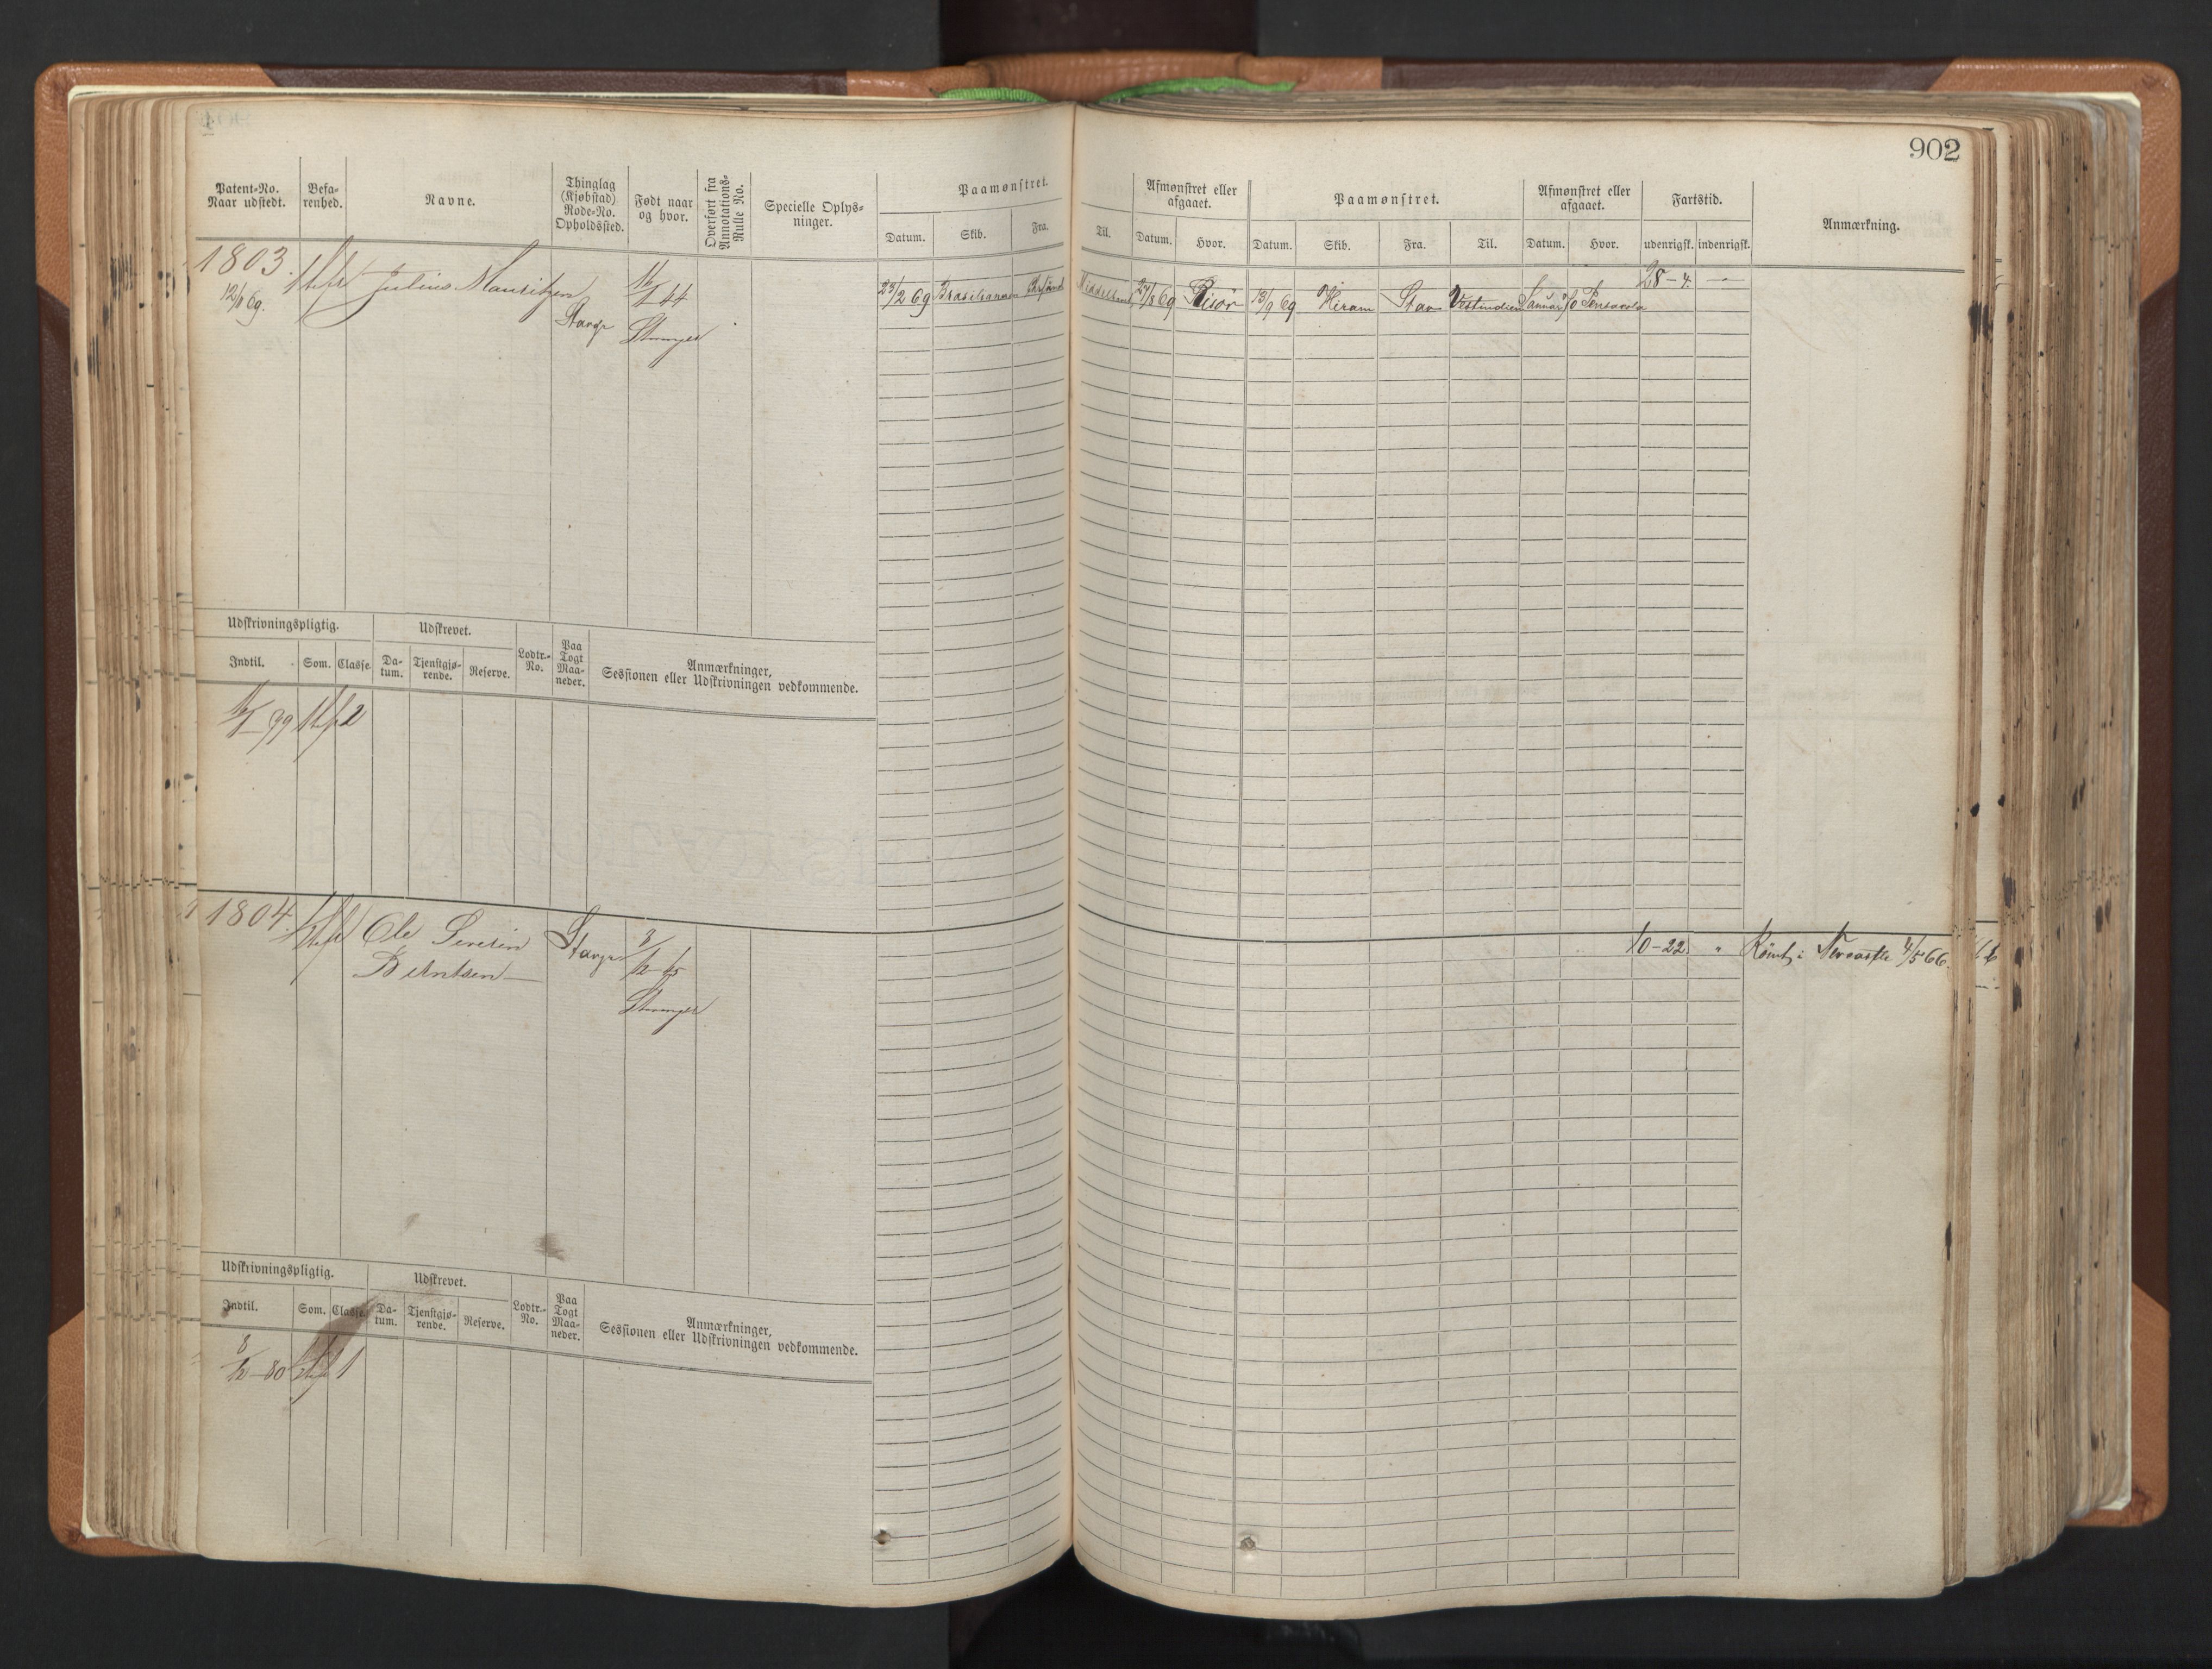 902
Patent-No. Naar udstedt.
Befa-renhed.
Navne.
Thinglag (Kjøbstad) Rode-No. Opholdssted.
Født naar og hvor.
Overført fra Annotations-Rulle No.
Specielle Oplys-ninger.
Paamønstret.
Datum. Skib. Fra.
Til.
Afmønstret eller afgaaet.
Datum. Hvor.
Paamønstret.
Datum. Skib. Fra. Til.
Afmønstret eller afgaaet.
Datum. Hvor.
Fartstid.
udenrigsk. indenrigsk.
Anmærkning.
1803.
12/8 69.
Julius Mauritzen
Stavgr
44
Stavanger
23/2 69 Brasilianeren
27/8 69 Risör 13/9 69 Hiram Stav Vestindien Januar 70 Pensacola
28-4. —
Udskrivningspligtig.
Indtil. Som. Classe.
Udskrevet.
Da-tum. Tjenstgjø-rende. Reserve.
Lodtr.-No.
Paa Togt Maa-neder.
Anmærkninger,
Sessionen eller Udskrivningen vedkommende.
2
1804.
Ole Severin
Berntsen
Stavgr
Stavanger
10-22. " Römt i Newcastle 4/5 66.
Udskrivningspligtig.
Indtil. Som. Classe.
Udskrevet.
Da-tum. Tjenstgjø-rende. Reserve.
Lodtr.-No.
Paa Togt Maa-neder.
Anmærkninger,
Sessionen eller Udskrivningen vedkommende.
8/12-80 1